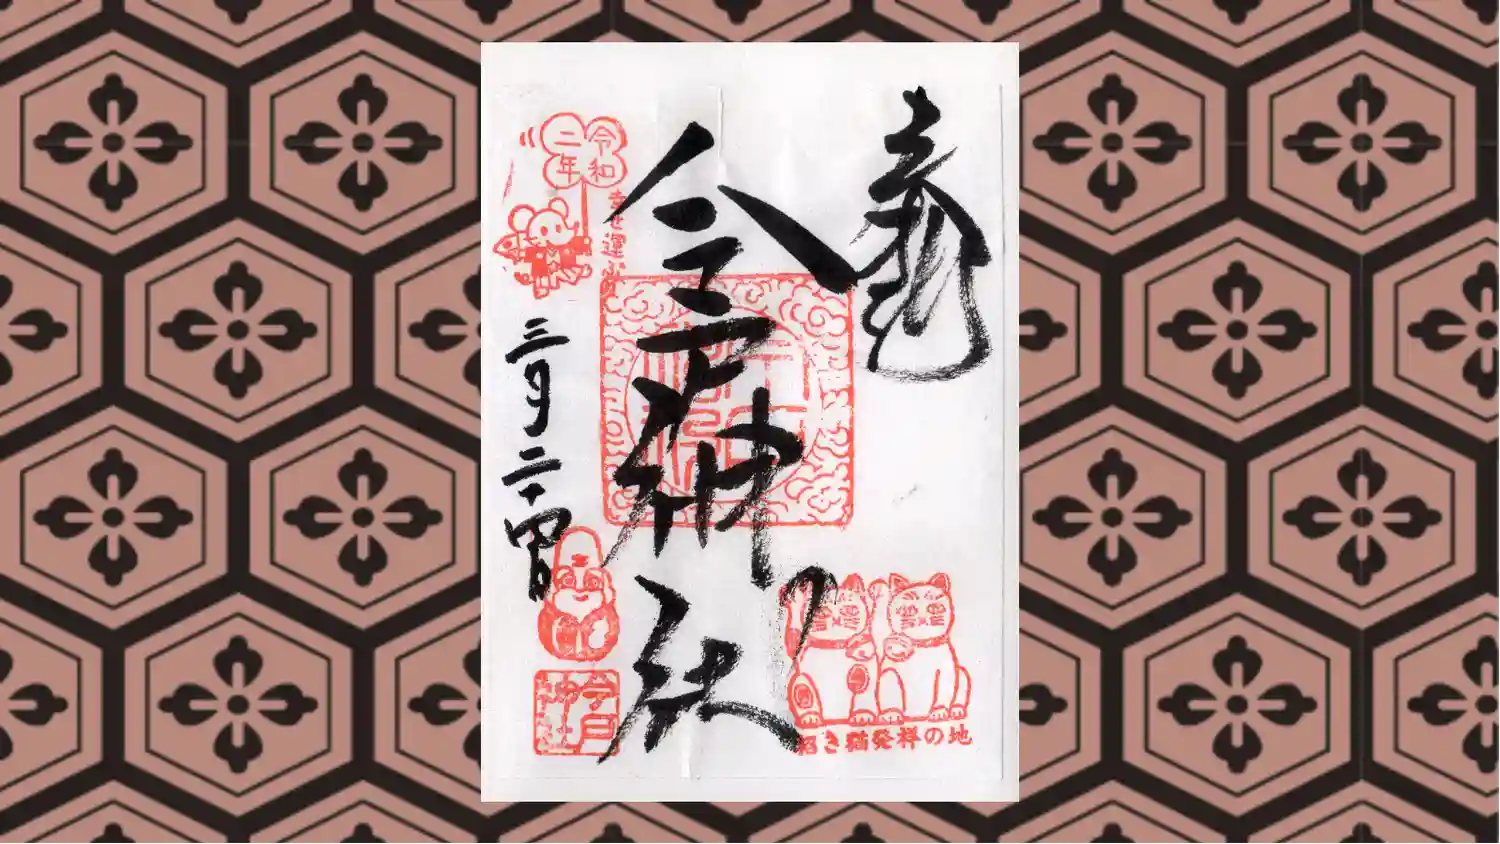 奉拝
今戸神社
招き猫発祥の地
令和
二年
三月二十四日
今戸
神社